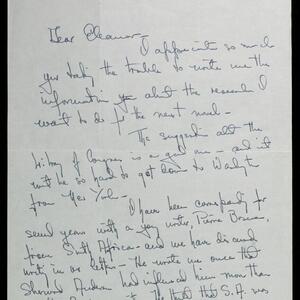 Dear Eleanor—
I appreciate so much
your taking the trouble to write me the
information you about the research I
want to do for the next novel—
The suggestion about the
Library of Congress is a good one— and it
won't be so hard to get down to
from New York—
I have been corresponding for
several years with a young writer, Pierre
from South Africa— and we have discussed
writing in our letters— He wrote me once that
Sherwood Anderson had influenced him more than
that the S.A. was